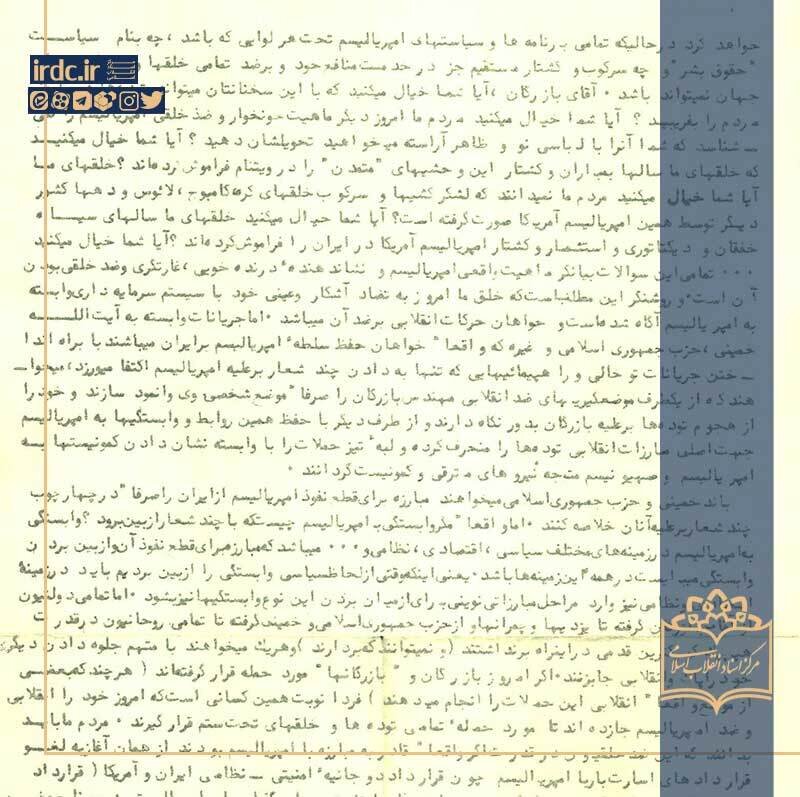 خواهد کرد درحالیکه تمامی برنامه ها و سیاستهای امپریالیسم تحت هر لوایی که باشد ، چه بنام سیاست
"حقوق بشر" و چه سرکوب و کشتار مستقیم جز در خدمت منافع خود و برضد تمامی خلقها
جهان نمیتواند باشد . آقای بازرگان ، آیا شما خیال میکنید که با این سخنانتان میتوانید
مردم را بفریبید ؟ آیا شما خیال میکنید مردم ما امروز دیگر ماهیت خونخوار و ضد خلقی امپریالیسم را
شناسد که شما آنرا با لباسی نو و ظاهر آراسته میخواهید تحویلشان دهید ؟ آیا شما خیال میکنید
که خلقهای ما سالها بمباران و کشتار این وحشیهای "متمدن" را در ویتنام فراموش کرده اند ؟ خلقهای ما
آیا شما خیال میکنید مردم ما نمیدانند که لشکر کشیها و سرکوب خلقهای کره کامبوج ، لائوس و دهها کشور
دیگر توسط همین امپریالیسم آمریکا صورت گرفته است؟ آیا شما خیال میکنید خلقهای ما سالهای سیاه
خفقان و دیکتاتوری و استثمار و کشتار امپریالیسم آمریکا در ایران را فراموش کرده اند ؟ آیا شما خیال میکنید
۰۰۰ تمامی این سوالات بیانگر ماهیت واقعی امپریالیسم و نشاندهنده درنده خویی ، غارتگری و ضد خلقی بودن
آن است و روشنگر این مطلب است که خلق ما امروز به تضاد آشکار وعینی خود با سیستم سرمایه داری وابسته
به امپریالیسم آگاه شده است و خواهان حرکات انقلابی برضد آن میباشد . اما جریانات وابسته به آیت الله
خمینی ، حزب جمهوری اسلامی و غیره که واقعا" خواهان حفظ سلطه امپریالیسم بر ایران میباشند با براه اندا
ختن جریانات تو خالی و راهپیمائیهایی که تنها به دادن چند شعار برعلیه امپریالیسم اکتفا میورزد ، میخوا
هند که از یکطرف موضعگیریهای ضد انقلابی مهندس بازرگان را صرفا" موضع شخصی وی وانمود سازند و خود را
از هجوم توده ها برعلیه بازرگان بدور نگاه دارند و از طرف دیگر با حفظ همین روابط و وابستگیها به امپریالیسم
جهت اصلی مبارزات انقلابی توده ها را منحرف کرده و لبه تیز حملات را با وابسته نشان دادن کمونیستها به
امپریالیسم و صهیونیسم متوجه نیروهای مترقی و کمونیست گردانند .
باند خمینی و حزب جمهوری اسلامی میخواهند مبارزه برای قطع نفوذ امپریالیسم از ایران را صرفا" در چهارچوب
چند شعار برعلیه آنان خلاصه کنند . اما واقعا" مگر وابستگی به امپریالیسم چیست که با چند شعار از بین برود ؟ وابستگی
به امپریالیسم در زمینه های مختلف سیاسی ، اقتصادی ، نظامی و ۰۰۰ میباشد که مبارزه برای قطع نفوذ آن و از بین بردن
وابستگی میبایست در همه این زمینه ها باشد . یعنی اینکه وقتی از لحاظ سیاسی وابستگی را از بین بردیم باید در زمینه
ونظامی نیز وارد مراحل مبارزاتی نوینی برای از میان بردن این نوع وابستگیها نیز بشود . اما تمامی دولتیون
گرفته تا یزدیها و چمرانها و از حزب جمهوری اسلامی و خمینی گرفته تا تمامی روحانیون در قدرت
قدمی در این راه برنداشتند (و نمیتوانند که بردارند) و هریک میخواهند با متهم جلوه دادن دیگری
خود را وانقلابی جا بزنند . اگر امروز بازرگان و "بازرگانها" مورد حمله قرار گرفته اند ( هرچند که بعضی
از انقلابی این حملات را انجام میدهند ) فردا نوبت همین کسانی است که امروز خود را انقلابی
و ضد امپریالیسم جا زده اند تا مورد حمله تمامی توده ها و خلقهای تحت ستم قرار گیرند . مردم ما باید
بدانند که این قادر به مبارزه با امپریالیسم بودند از همان آغاز به لغو
قراردادهای اسارت بار با امپریالیسم چون قرارداد دو جانبه امنیتی - نظامی ایران و آمریکا ( قرارداد
irdc.ir
مرکز اسناد انقلاب اسلامی